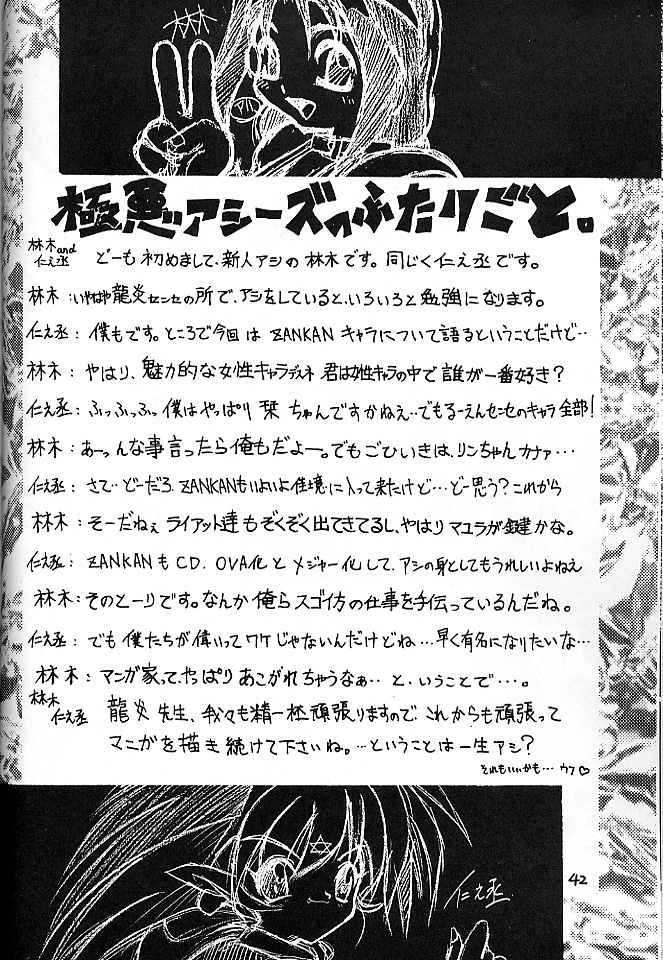 林木
極悪アシーズのふたりごと。
林木and仁え丞 どーも初めまして、新人アシの林木です。同じく仁え丞です。
林木：いやはや龍炎センセの所で、アシをしていると、いろいろと勉強になります。
仁え丞：僕もです。ところで今回は ZANKAN キャラについて語るということだけど‥
林木：やはり、魅力的な女性キャラデスネ 君は女性キャラの中で誰が一番好き?
仁え丞：ふっふっふっ 僕はやっぱり 栞 ちゃんですかねぇ‥でもるーえんセンセのキャラ全部!
林木：あーっんな事言ったら俺もだよー。でもごひいきは、リンちゃんカナァ…
仁え丞：さて‥どーだろ、ZANKANもいよいよ佳境に入って来たけど…どー思う?これから
林木：そーだねぇ ライアット達もぞくぞく出てきてるし、やはりマユラが鍵かな。
仁え丞：ZANKANも CD、OVA化と メジャー化して、アシの身としてもうれしいよねえ
林木：そのとーりです。なんか俺らスゴイ方の仕事を手伝っているんだね。
仁え丞：でも僕たちが偉いってワケじゃないんだけどね…早く有名になりたいな…
林木：マンガ家って、やっぱりあこがれちゃうなぁ‥ と、いうことで…。
林木 仁え丞 龍炎先生、我々も精一杯頑張りますので、これからも頑張って
マンガを描き続けて下さいね。…ということは一生アシ?
それもいいかも… ウフ♡
42
仁え丞